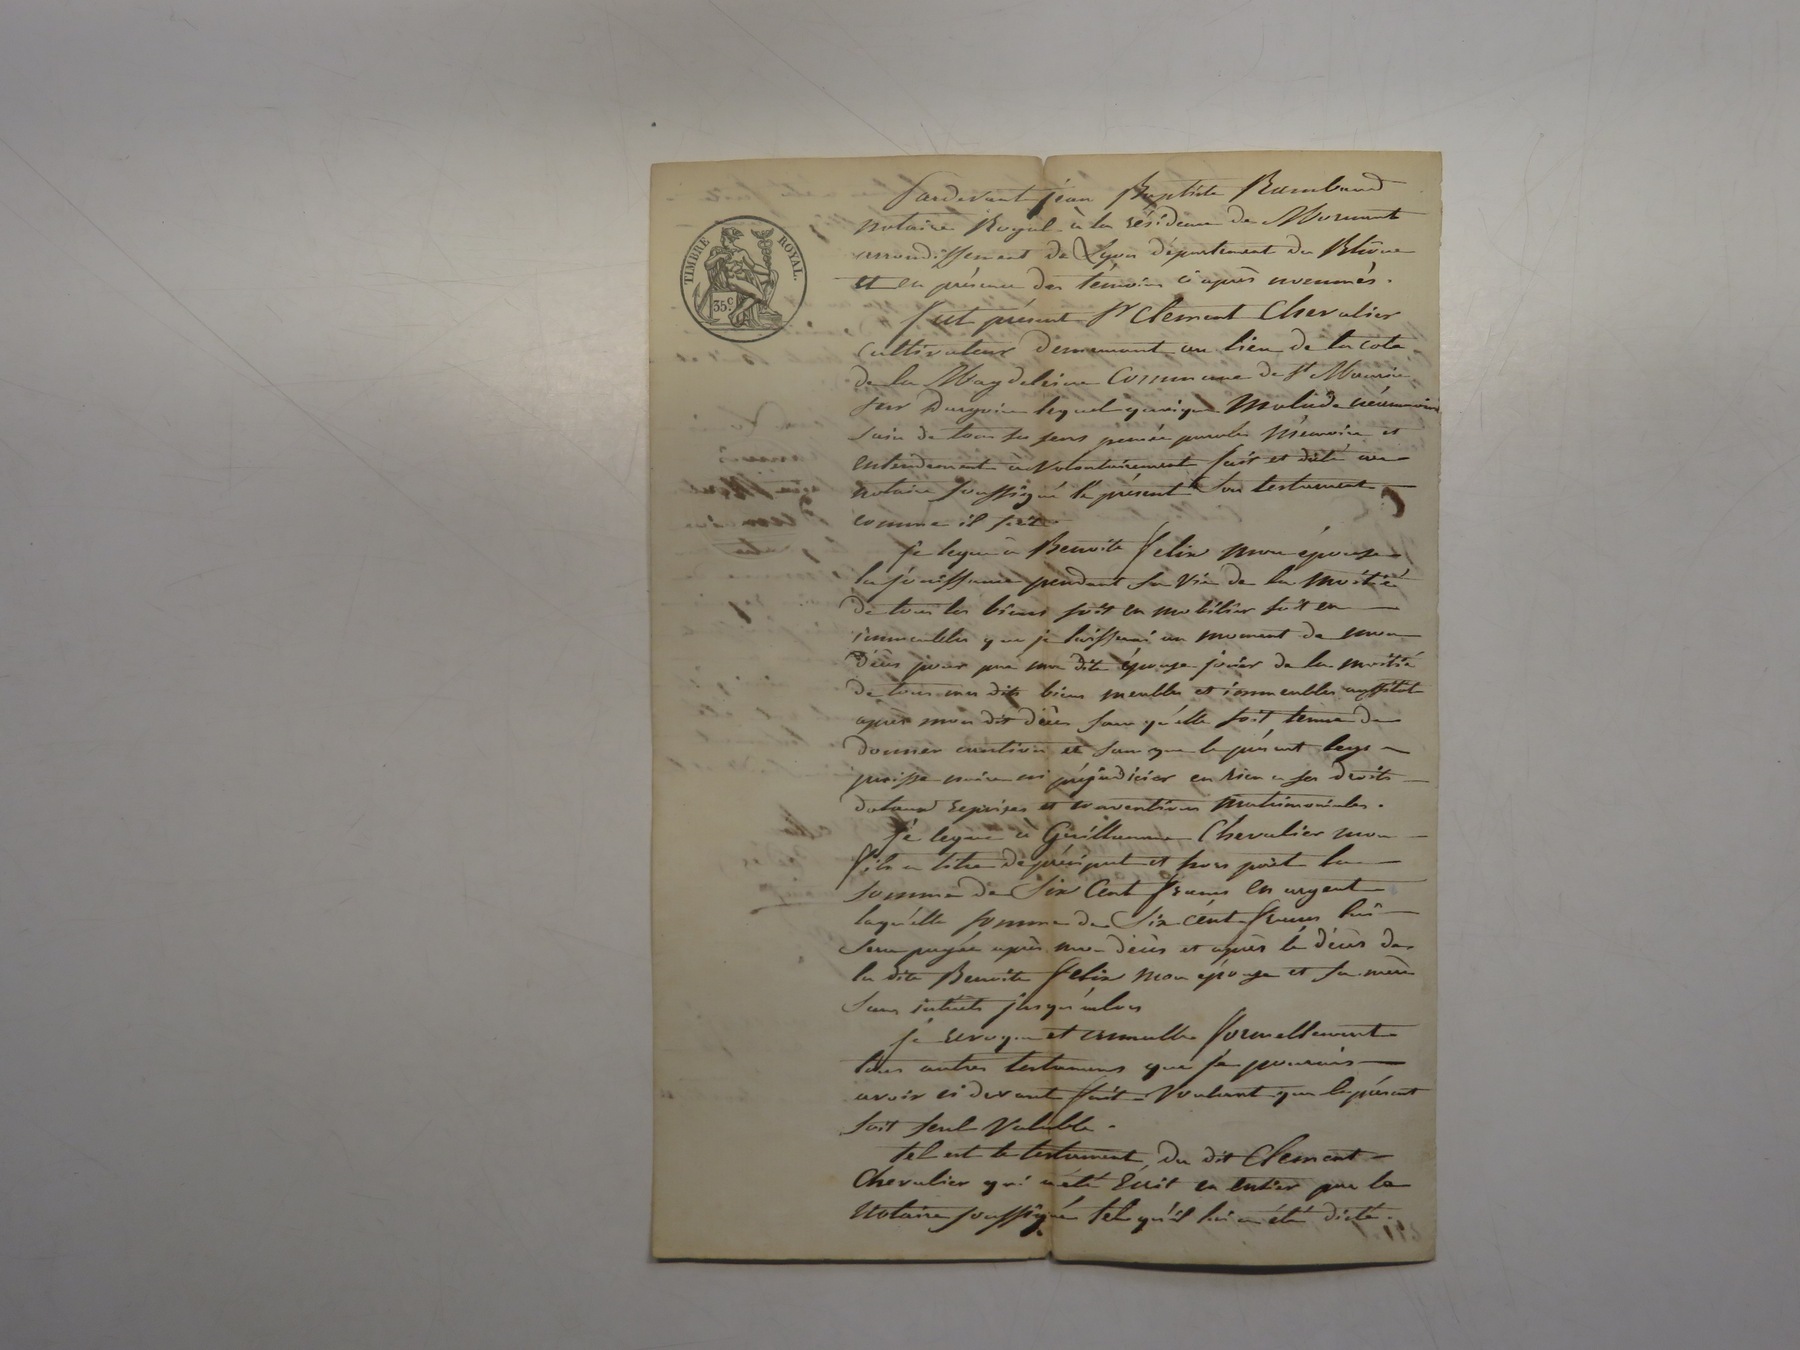 TIMBRE ROYAL.
35 c
Pardevant jean Baptiste Rambaud
notaire Royal à la résidence de Mornant
arrondissement de Lyon département du Rhône
et en présence des témoins ci après nommés.
fut présent Sr Clement Chevalier
Cultivateur demeurant au lieu de la cote
de la Magdeleine Commune de St Maurice
sur Dargoire lequel quoique Malade néanmoins
sain de tous ses sens pensée parole Mémoire et
Entendement a Volontairement fait et dicté au
notaire soussigné le présent son testament
comme il suit
je legue à Benoite Felix mon épouse
la jouissance pendant sa Vie de la moitié
de tous les biens soit en mobilier soit en
immeubles que je laisserai au moment de mon
décès pour par ma dite épouse jouir de la moitié
de tous mes dits biens meubles et immeubles aussitot
après mon dit décès sans qu'elle soit tenue de
donner caution et sans que le présent legs
puisse nuire ni préjudicier en rien a ses droits
dotaux reprises et conventions matrimoniales.
je legue à Guillaume Chevalier mon
fils a titre de préciput et hors part la
somme de Six Cent francs en argent
laquelle somme de Six cént francs lui
sera payée après mon décès et après le décès de
la dite Benoite Felix mon épouse et sa mère
sans intérêts jusqu'alors
je revoque et annulle formellement
tous autres testamens que je pourrais
avoir ci devant fait Voulant que le présent
soit seul Valable.
tel est le testament du dit Clement
Chevalier qui a été Ecrit en entier par le
Notaire soussigné tel qu'il lui a été dicté.